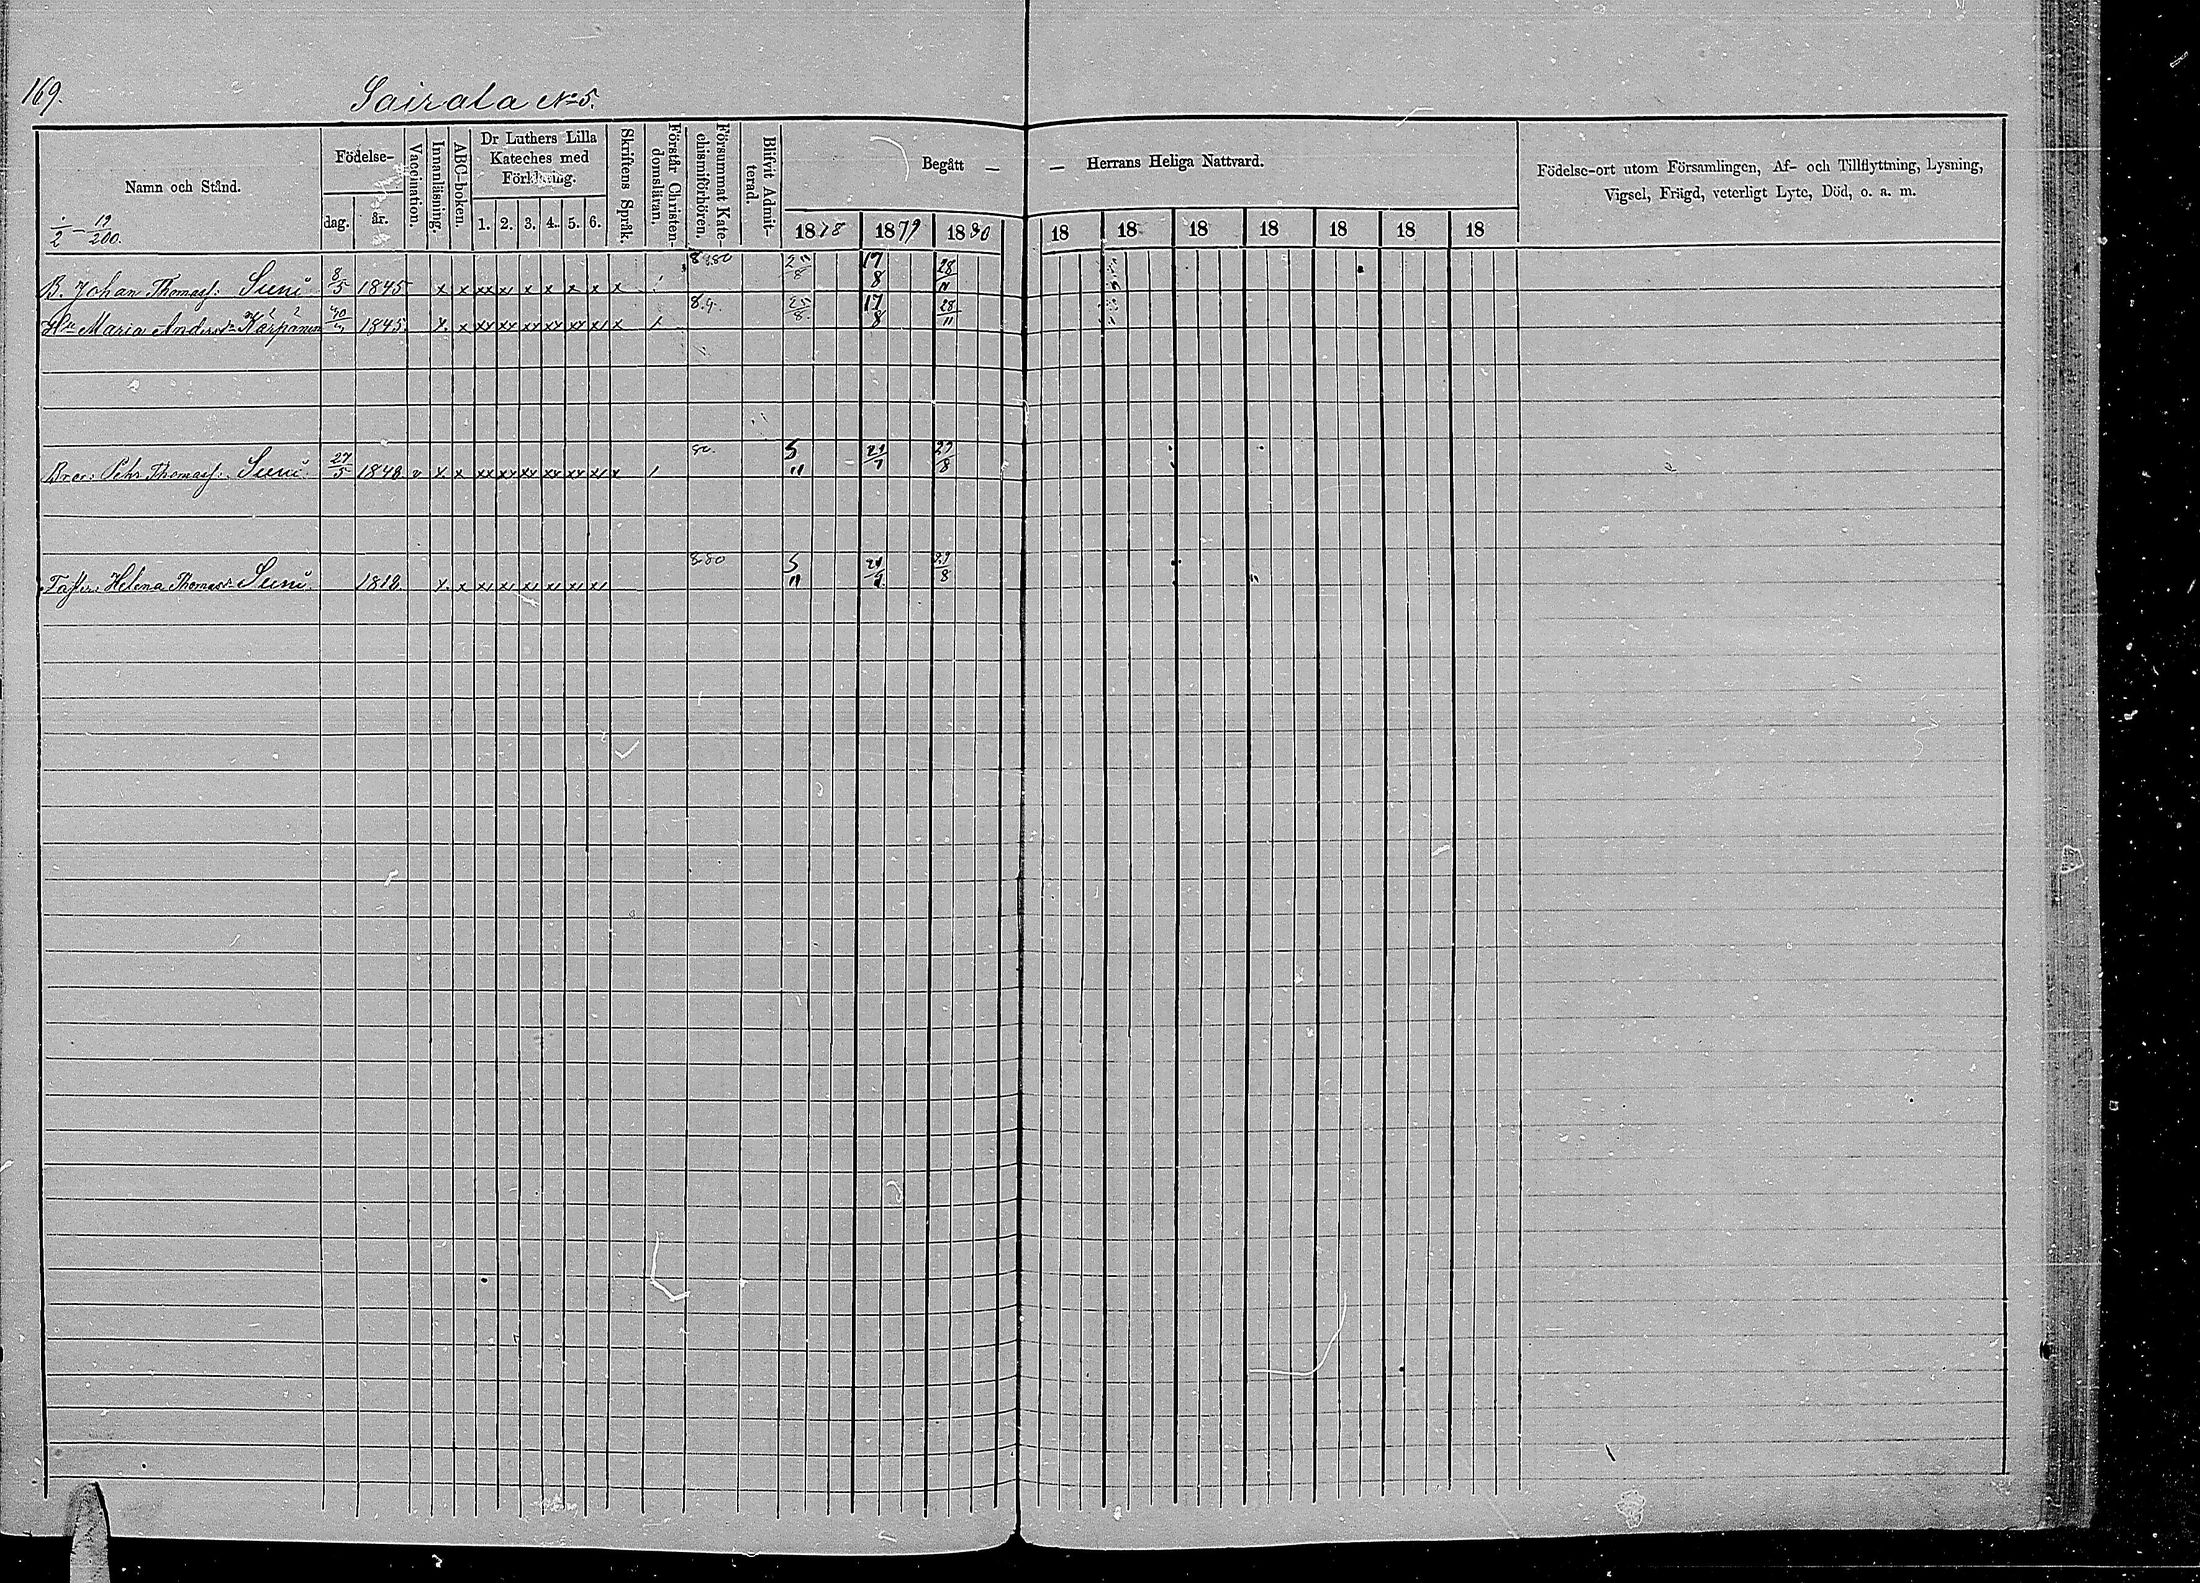 169.
Sairala No 5.
Namn och Stånd.
Födelse-
dag.
år.
Vaccination.
Innanläsning.
ABC-boken.
Dr Luthers Lilla
Kateches med
Förklaring.
1. 2. 3. 4. 5. 6.
Skriftens Språk.
Förstår Christen-
domsläran.
Försummat Kate-
chismiförhören.
Blifvit Admit-
terad.
Begått —
— Herrans Heliga Nattvard.
Födelse-ort utom Församlingen, Af- och Tillflyttning, Lysning,
Vigsel, Frägd, veterligt Lyte, Död, o. a. m.
1/2 — 19/200.
1878 1879 1880 18 18 18 18 18 18 18
B. Johan Thomass: Suni 8/5 1845 x x xx x x x x x 28/11
Hu Maria Andersdr Kärpänen 1845 x x xx xx xx xx xx x x 17/8 28/11
Bror: Pehr Thomass: Suni 27/5 1848 v x x xx xx xx xx xx x x 80. 5/11 29/8
Faster Helena Thomasdr Suni. 1812 x x 5/11 29/8